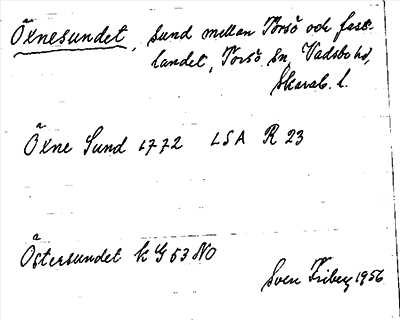 Öxnesundet, sund mellan Torsö och fast-
landet, Torsö sn, Vadsbo hd,
Skarab. l.
Öxne Sund 1772 LSA R 23
Östersundet k G 53 NO
Sven Friberg 1956